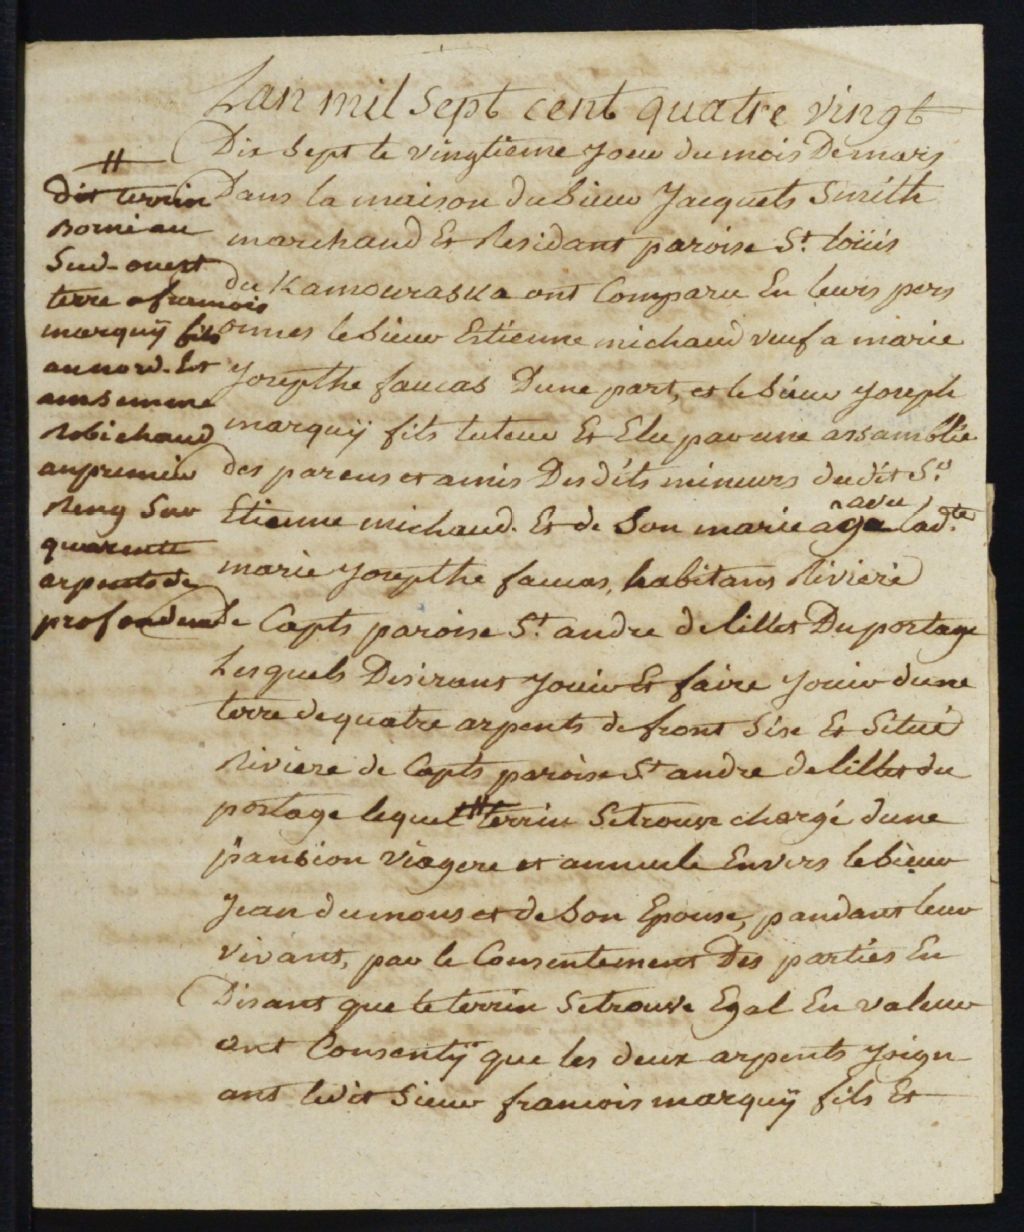 Lan mil Sept cent quatre vingt
Dix Sept le vingtieme Jour du mois De mars
Dans la maison du Sieur Jacquets Smith
marchand Et Residant paroise St. loüis
du Kamouraska ont Comparu En leurs pers
onnes le Sieur Estienne michaud veuf a marie
Josepthe faucas Dune part, et le Sieur Joseph
marquÿ fils tuteur Et Elu par une assamblée
des parens et amis Des dits mineurs du dit Sr.
Etienne michaud. Et de Son mariage avec lad.te
marie Josepthe faucas, habitans Riviere
De Capts paroise St. andre de lillet Du portage
Lesquels Desirant Jouir Et faire Jouir dune
terre de quatre arpents de front Sise Et Situé
Riviere de Capts paroise St andre de lillet du
portage lequel # terrin Setrouve chargé dune
pansion viagere et annuele Envers le Sieur
Jean dumons et de Son Epouse, pandant leur
vivant, par le Consentement Des parties En
Disant que le terrin Setrouve Egal En valeur
ont Consentÿ que les deux arpents Joign
ant ledit Sieur francois marquÿ fils Et
#
dit terrin
Borné au
Sud-ouest
terre a francois
marquÿ fils
au nord-Est
Robichaud
au premier
Reng Sur
quarente
arpents de
profondeur